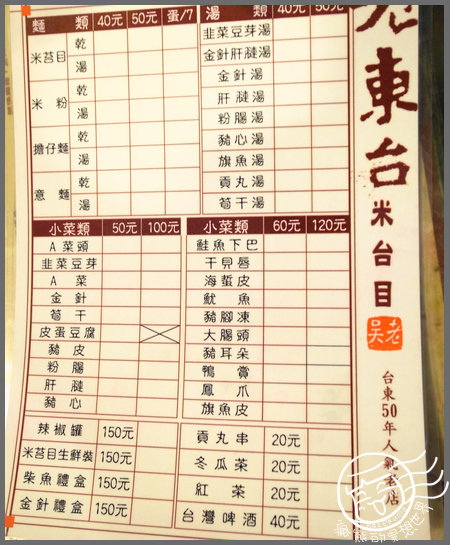 麵 類 40元 50元 蛋/7
米苔目 乾
湯
米 粉 乾
湯
擔仔麵 乾
湯
意 麵 乾
湯
湯 類 40元 50元
韭菜豆芽湯
金針肝膇湯
金針湯
肝膇湯
粉腸湯
豬心湯
旗魚湯
貢丸湯
筍干湯
小菜類 50元 100元
A菜頭
韭菜豆芽
A 菜
金 針
筍 干
皮蛋豆腐
豬 皮
粉 腸
肝 膇
豬 心
小菜類 60元 120元
鮭魚下巴
干貝唇
海蜇皮
魷 魚
豬腳凍
大腸頭
豬耳朵
鴨 賞
鳳 爪
旗魚皮
辣椒罐 150元
米苔目生鮮裝 150元
柴魚禮盒 150元
金針禮盒 150元
貢丸串 20元
冬瓜茶 20元
紅 茶 20元
台灣啤酒 40元
老東台
米台目
老吳
台東50年人氣老店